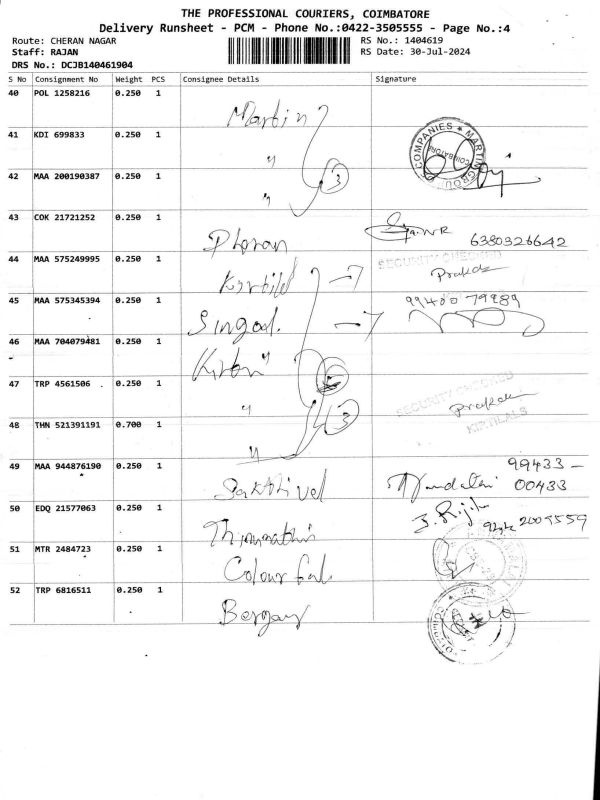 THE PROFESSIONAL COURIERS, COIMBATORE
Delivery Runsheet - PCM - Phone No.:0422-3505555 - Page No.:4
Route: CHERAN NAGAR
RS No.: 1404619
Staff: RAJAN
RS Date: 30-Jul-2024
DRS No.: DCJB140461904
S No Consignment No Weight PCS Consignee Details Signature
40 POL 1258216 0.250 1 Martin
41 KDI 699833 0.250 1 "
COMPANIES ★ MARTIN GROUP COIMBATORE
42 MAA 200190387 0.250 1 " 3
43 COK 21721252 0.250 1 Dharan 6380326642
44 MAA 575249995 0.250 1 Kirtilal
SECURITY CHECKED
45 MAA 575345394 0.250 1 Singal.
46 MAA 704079481 0.250 1 "
47 TRP 4561506 0.250 1 "
SECURITY CHECKED
KIRTILALS
48 THN 521391191 0.700 1 " 3
49 MAA 944876190 0.250 1 Sakthivel 99433 - 00433
50 EDQ 21577063 0.250 1
51 MTR 2484723 0.250 1 Colour
52 TRP 6816511 0.250 1 Berger